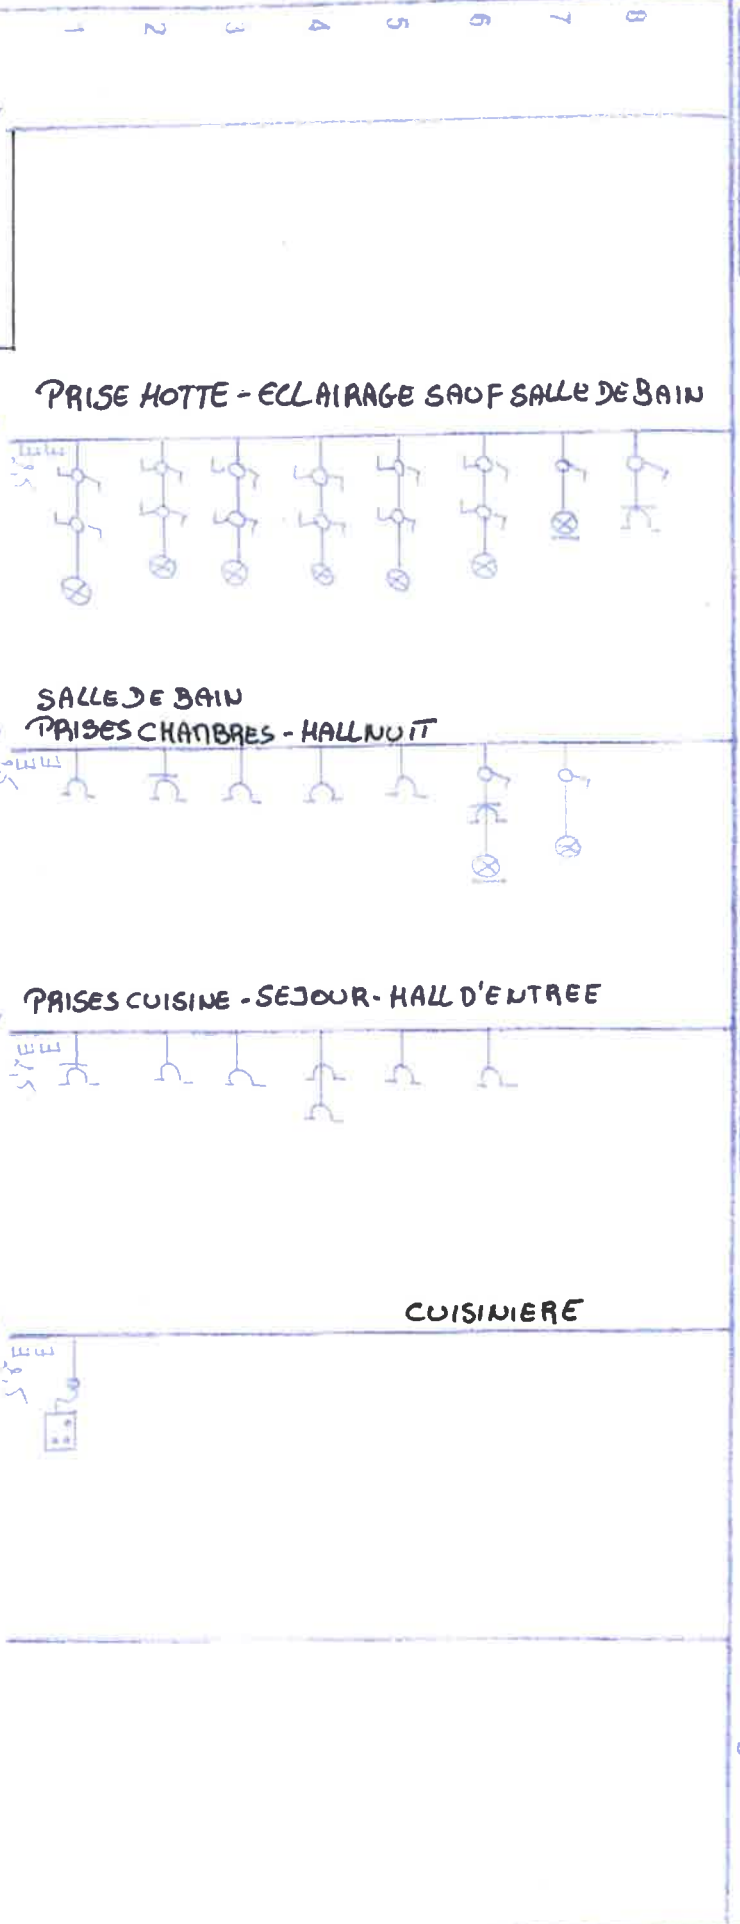 1 2 3 4 5 6 7 8
PRISE HOTTE - ECLAIRAGE SAUF SALLE DE BAIN
2,5
SALLE DE BAIN
PRISES CHAMBRES - HALL NUIT
PRISES CUISINE - SEJOUR - HALL D'ENTREE
2,5
CUISINIERE
2,5